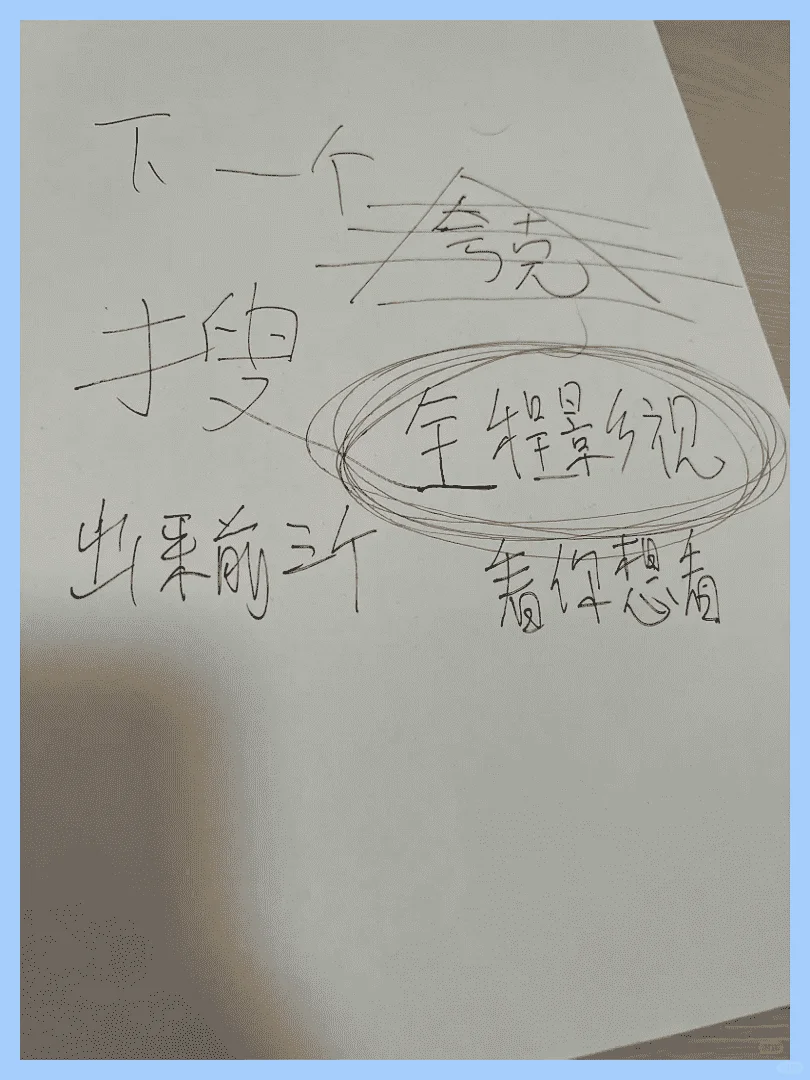 下一个
夸克
搜
全程影视
出来前三个
看你想看